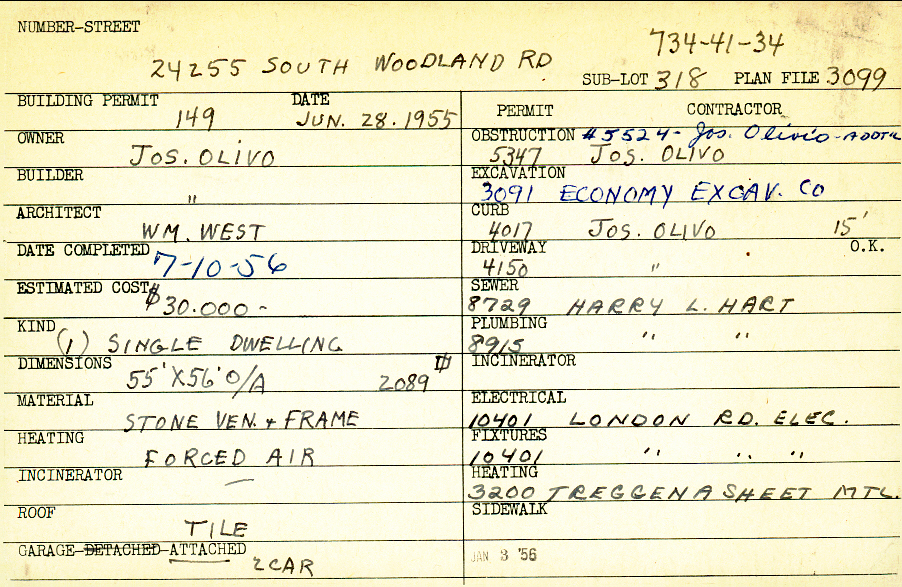 NUMBER-STREET
734-41-34
24255 SOUTH WOODLAND RD
SUB-LOT 318 PLAN FILE 3099
BUILDING PERMIT DATE
149 JUN. 28. 1955
OWNER
JOS. OLIVO
BUILDER
"
ARCHITECT
WM. WEST
DATE COMPLETED 7-10-56
ESTIMATED COST $30.000-
KIND
(1) SINGLE DWELLING
DIMENSIONS
55'X56' O/A 2089
MATERIAL
STONE VEN. + FRAME
HEATING
FORCED AIR
INCINERATOR
—
ROOF
TILE
GARAGE-DETACHED-ATTACHED
2 CAR
PERMIT CONTRACTOR
OBSTRUCTION #5524- Jos. Olivio-ADDT'L
5347 JOS. OLIVO
EXCAVATION
3091 ECONOMY EXCAV. CO
CURB
4017 JOS. OLIVO 15'
DRIVEWAY O.K.
4150 "
SEWER
8729 HARRY L. HART
PLUMBING
8915 " "
INCINERATOR
ELECTRICAL
10401 LONDON RD. ELEC.
FIXTURES
10401 " " "
HEATING
3200 TREGGENA SHEET MTL.
SIDEWALK
JAN 3 '56